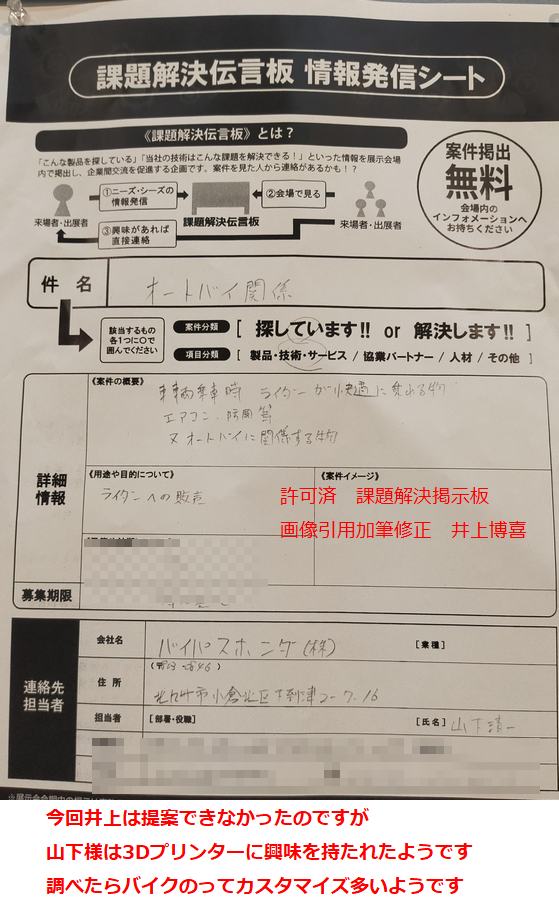 課題解決伝言板 情報発信シート
《課題解決伝言板》とは？
「こんな製品を探している」「当社の技術はこんな課題を解決できる！」といった情報を展示会場
内で掲出し、企業間交流を促進する企画です。案件を見た人から連絡があるかも！？
案件掲出
無料
会場内の
インフォメーションへ
お持ちください
①ニーズ・シーズの
情報発信
②会場で見る
来場者・出展者
課題解決伝言板
来場者・出展者
③興味があれば
直接連絡
件名
オートバイ関係
該当するもの
各1つに○で
囲んでください
案件分類 [ 探しています!! or 解決します!! ]
項目分類 [ 製品・技術・サービス / 協業パートナー / 人材 / その他 ]
詳細
情報
《案件の概要》
車輌乗車時 ライダーが快適に乗れる物
エアコン
又オートバイに関係する物
《用途や目的について》
ライダーへの販売
《案件イメージ》
許可済 課題解決掲示板
画像引用加筆修正 井上博喜
募集期限
連絡先
担当者
会社名
バイパスホンダ(株)
[業種]
住所
北九州市小倉北区下到津2-7-16
担当者
[部署・役職]
[氏名] 山下
今回井上は提案できなかったのですが
山下様は3Dプリンターに興味を持たれたようです
調べたらバイクのってカスタマイズ多いようです